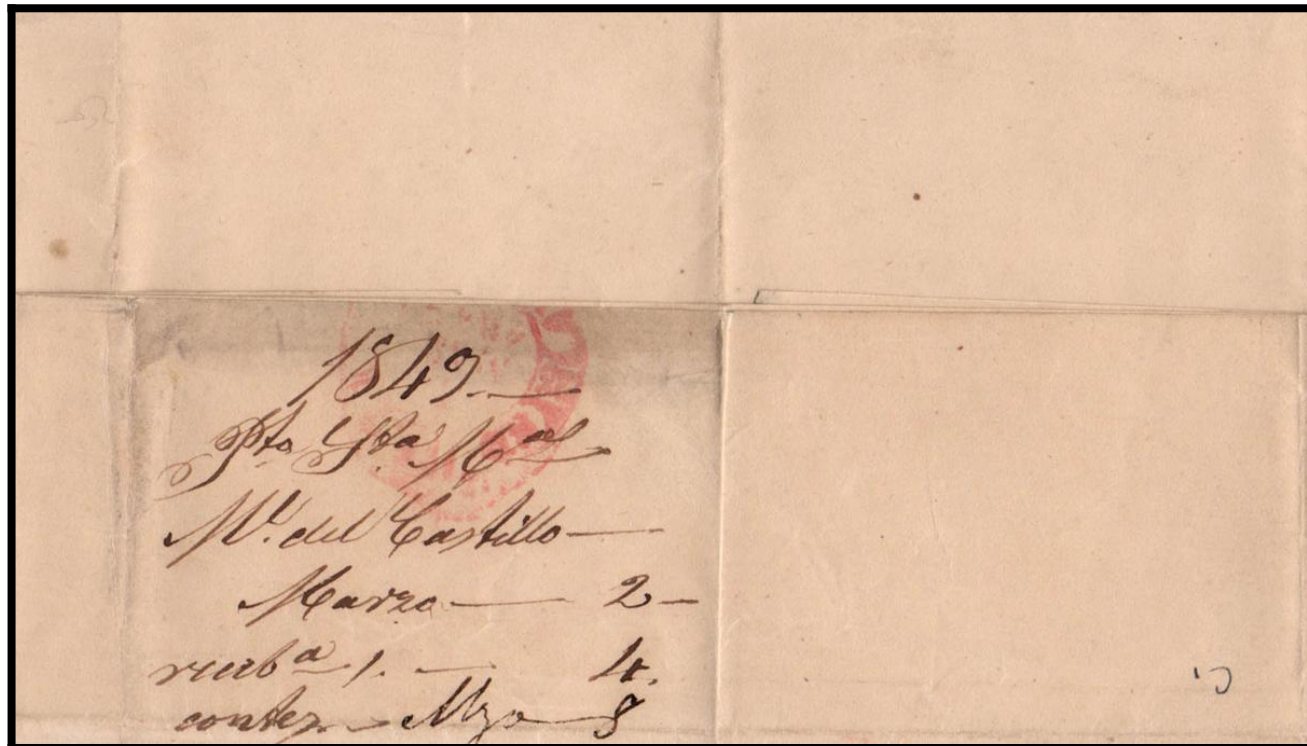 1849.—
Pto. Sta. Mª
Ml. del Castillo—
Marzo — 2—
recibª — 4.
contez — Mzo — 8